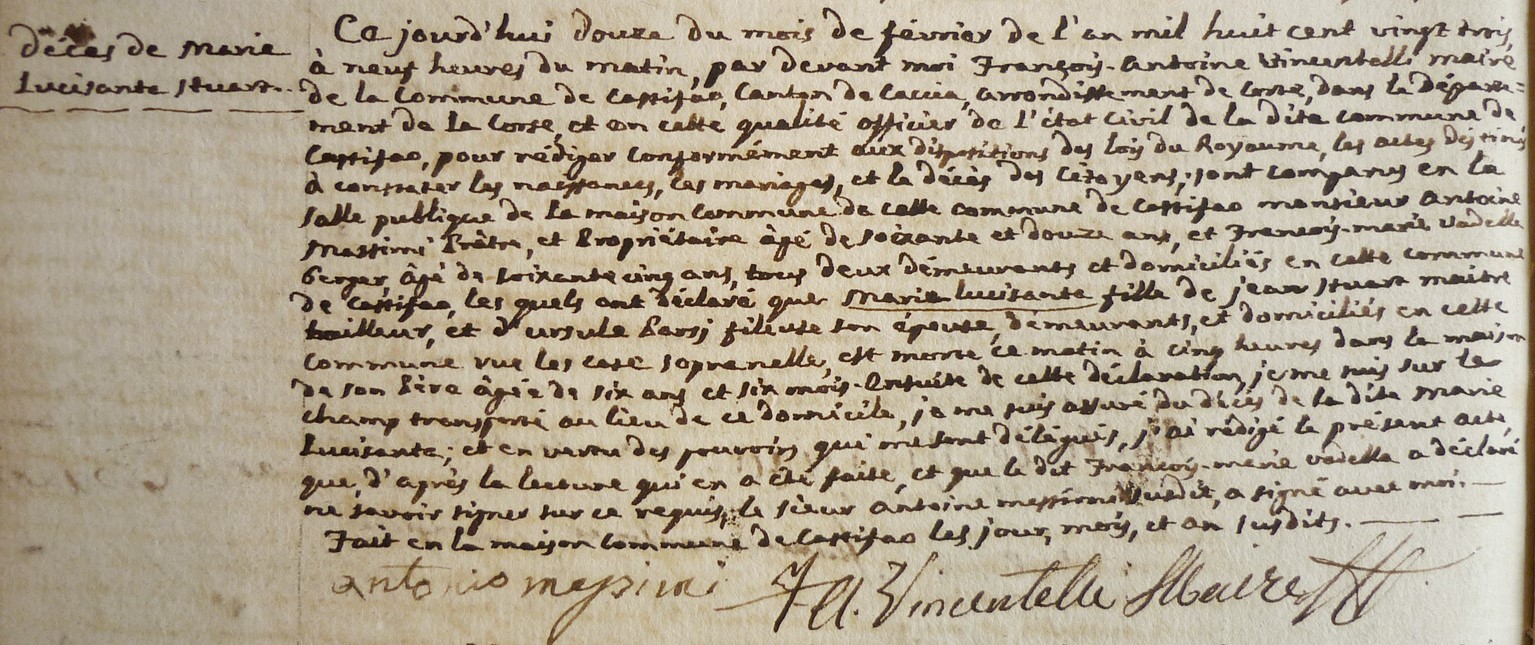 décès de Marie
Lucisante Stuart.
Ce jourd'hui douze du mois de février de l'an mil huit cent vingt trois,
à neuf heures du matin, par devant moi François-Antoine Vincentelli maire
de la Commune de Castifao, Canton de Caccia, arrondissement de Corse, dans le départe=
ment de la Corse, et en cette qualité officier de l'état Civil de la dite commune de
Castifao, pour rédiger conformément aux dispositions des lois du Royaume, les actes destinés
à constater les naissances, les mariages, et le décès des Citoyens; sont comparus en la
salle publique de la maison commune de cette commune de Castifao monsieur Antoine
Massimi Prêtre, et Propriétaire âgé de soixante et douze ans, et François-marie Vadella
berger, âgé de soixante cinq ans, tous deux démeurants et domiciliés en cette commune
de Castifao, les quels ont déclaré que Marie lucisante fille de jean Stuart maitre
tailleur, et d'ursule Parsi fileuse son épouse, démeurants, et domiciliés en cette
commune rue les case sopranelle, est morte ce matin à cinq heures dans la maison
de son Père âgée de six ans et six mois. Ensuite de cette déclaration, je me suis sur le
champ transporté au lieu de ce domicile, je me suis assuré du décès de la dite Marie
Lucisante; et en vertu des pouvoirs qui me sont délégués, j'ai rédigé le présent acte,
que, d'après la lecture qui en a été faite, et que le dit François-marie vadella a déclaré
ne savoir signer sur ce requis, le sieur Antoine massimi susdit, a signé avec moi.
Fait en la maison commune de Castifao les jour, mois, et an susdits.
antonio massimi F A. Vincentelli Maire